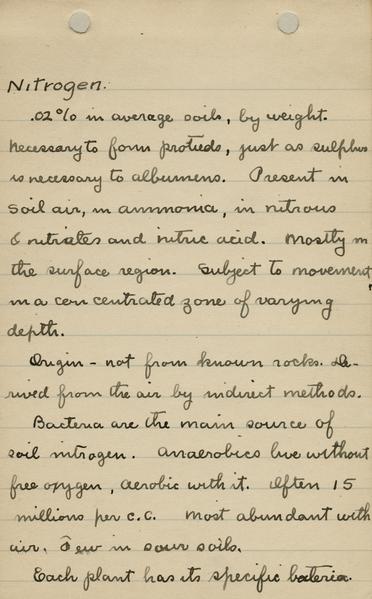 Nitrogen.
.02% in average soils, by weight.
Necessary to form protieds, just as sulphur
is necessary to albumens. Present in
soil air, in ammonia, in nitrous
& nitrates and nitric acid. Mostly in
the surface region. Subject to movement
in a concentrated zone of varying
depth.
Origin - not from known rocks. De-
rived from the air by indirect methods.
Bacteria are the main source of
soil nitrogen. Anaerobics live without
free oxygen, aerobic with it. Often 15
millions per c.c. Most abundant with
air. Few in sour soils.
Each plant has its specific bateria.